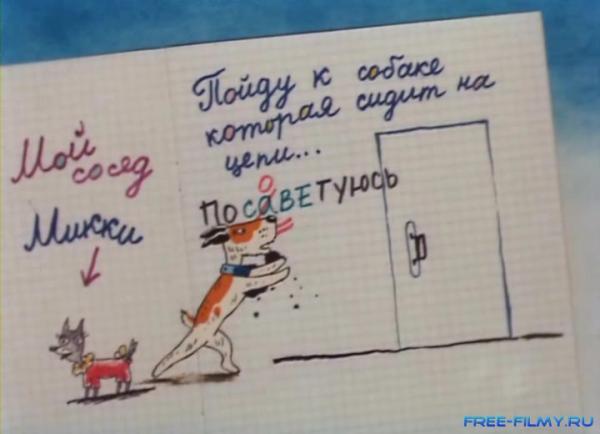 Мой
сосед
Микки
Пойду к собаке
которая сидит на
цепи...
о
ПОСАВЕТУЮСЬ
FREE-FILMY.RU